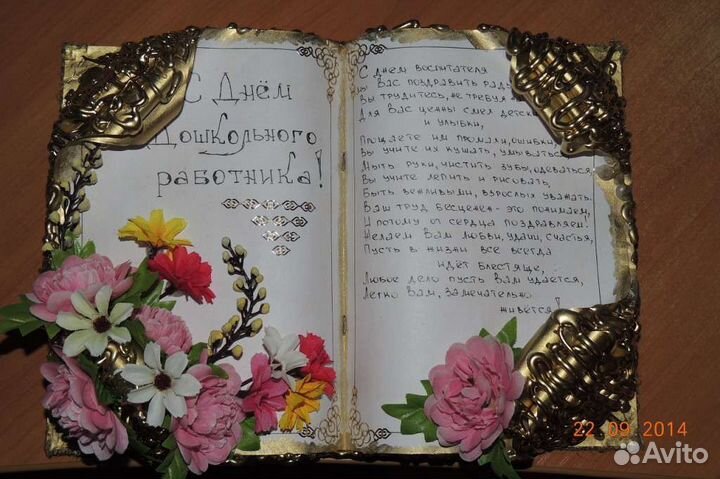 С Днём
Дошкольного
работника!
С днем воспитателя
Вас поздравить рады
Вы трудитесь, не требуя
Для Вас ценны смех детский
и улыбки,
Прощаете им промахи, ошибки,
Вы учите их кушать, умываться
Мыть руки, чистить зубы, одеваться.
Вы учите лепить и рисовать,
Быть вежливыми, взрослых уважать.
Ваш труд бесценен - это понимаем,
И потому от сердца поздравляем!
Желаем Вам любви, удачи, счастья,
Пусть в жизни все всегда
идёт блестяще,
Любое дело пусть Вам удается,
Легко Вам, замечательно
живётся!
22 09 2014
Avito